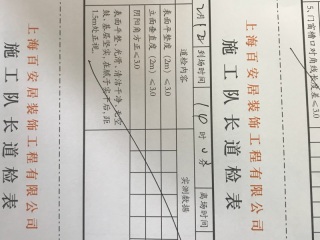 5.门窗槽口对角线长度差≤3.0
上海百安居装饰工程有限公司
施工队长道检表
2月12 到场时间 14时 分 离场时间
道检内容 实测数据
表面平整度 (2m) ≤3.0
立面垂直度 (2m) ≤3.0
阴阳角方正≤3.0
表面平整、光滑、清洁干净、无空
1.5m处正视。
上海百安居装饰工程有限公司
施工队长道检表